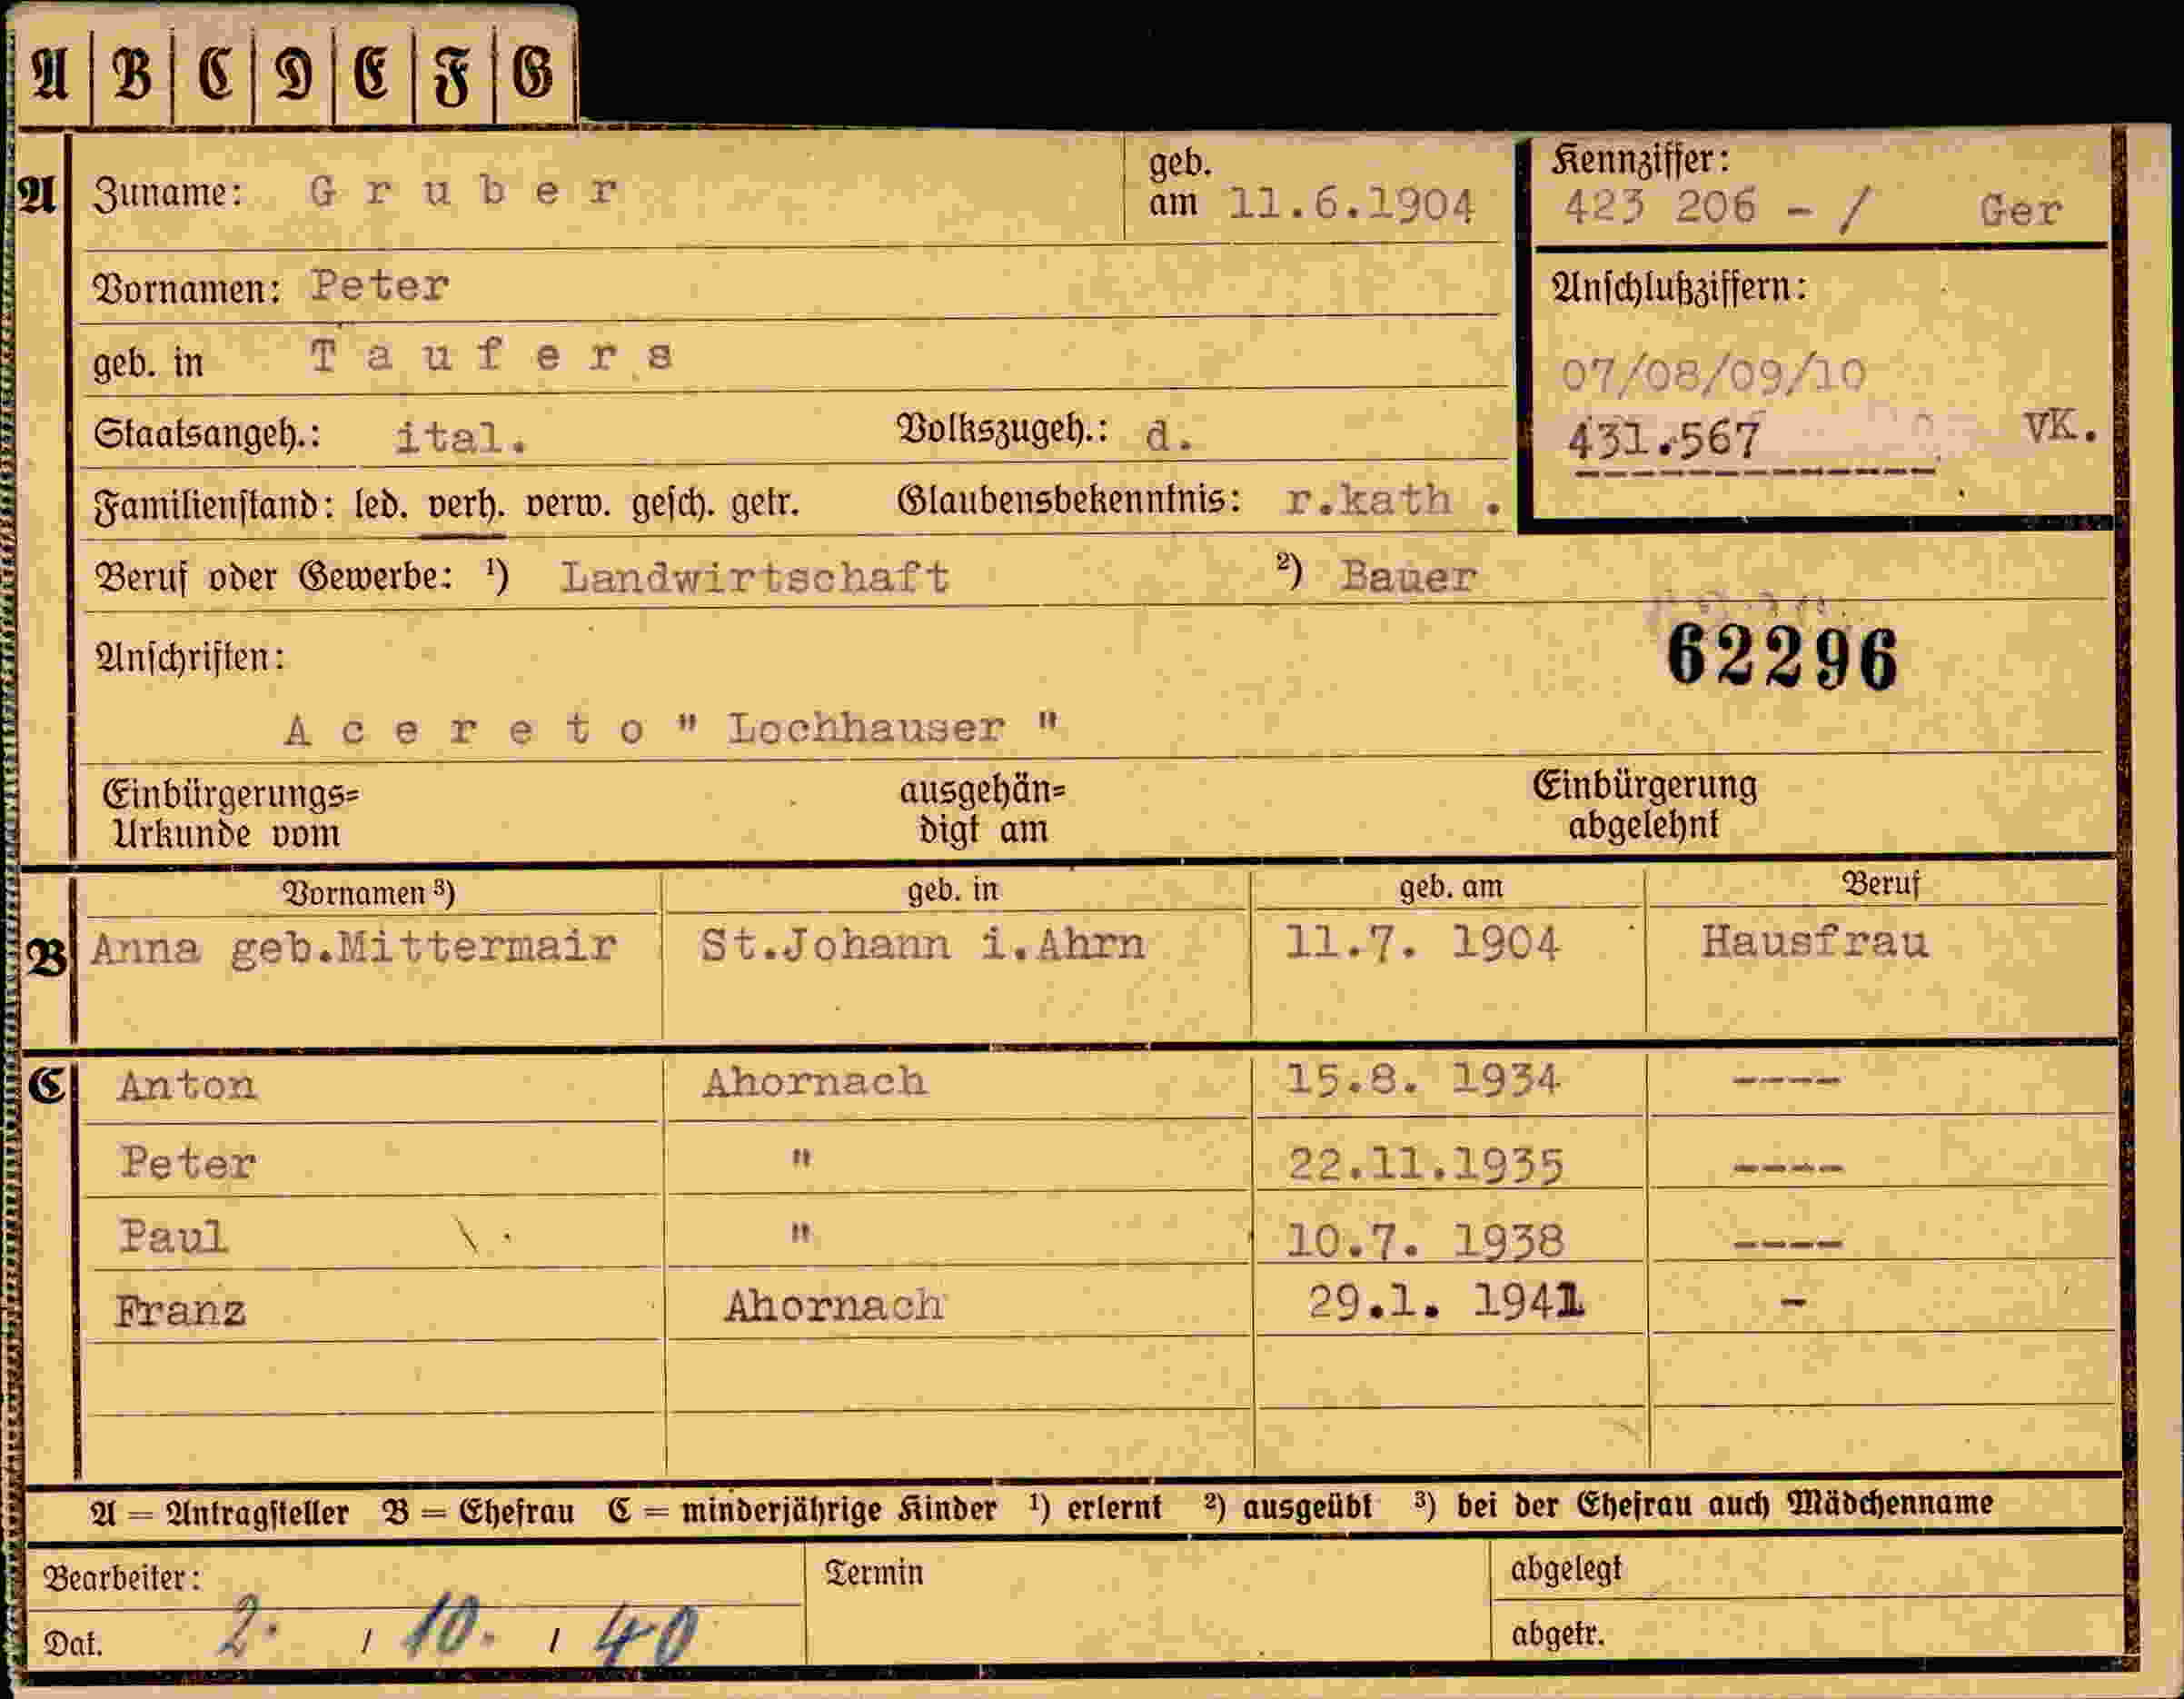 A B C D E F G
A Zuname: Gruber geb. am 11.6.1904
Kennziffer:
423 206 - / Ger
Vornamen: Peter
Anschlußziffern:
geb. in Taufers
07/08/09/10
Staatsangeh.: ital. Volkszugeh.: d.
431.567 VK.
Familienstand: led. verh. verw. gesch. getr. Glaubensbekenntnis: r.kath .
Beruf oder Gewerbe: ¹) Landwirtschaft ²) Bauer
62296
Anschriften:
Acereto " Lochhauser "
Einbürgerungs= ausgehän= Einbürgerung
Urkunde vom digt am abgelehnt
Vornamen ³) geb. in geb. am Beruf
B Anna geb.Mittermair St.Johann i.Ahrn 11.7. 1904 Hausfrau
C Anton Ahornach 15.8. 1934 ----
Peter " 22.11.1935 ----
Paul " 10.7. 1938 ----
Franz Ahornach 29.1. 1941 -
A = Antragsteller B = Ehefrau C = minderjährige Kinder ¹) erlernt ²) ausgeübt ³) bei der Ehefrau auch Mädchenname
Bearbeiter: Termin abgelegt
Dat. 2. / 10. / 40 abgetr.